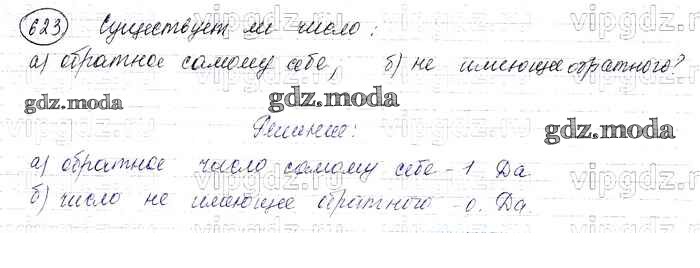 623 Существует ли число:
а) обратное самому себе, б) не имеющее обратного?
gdz.moda gdz.moda gdz.moda
Решение:
а) обратное число самому себе - 1. Да
б) число не имеющее обратного - 0. Да.
vipgdz.ru